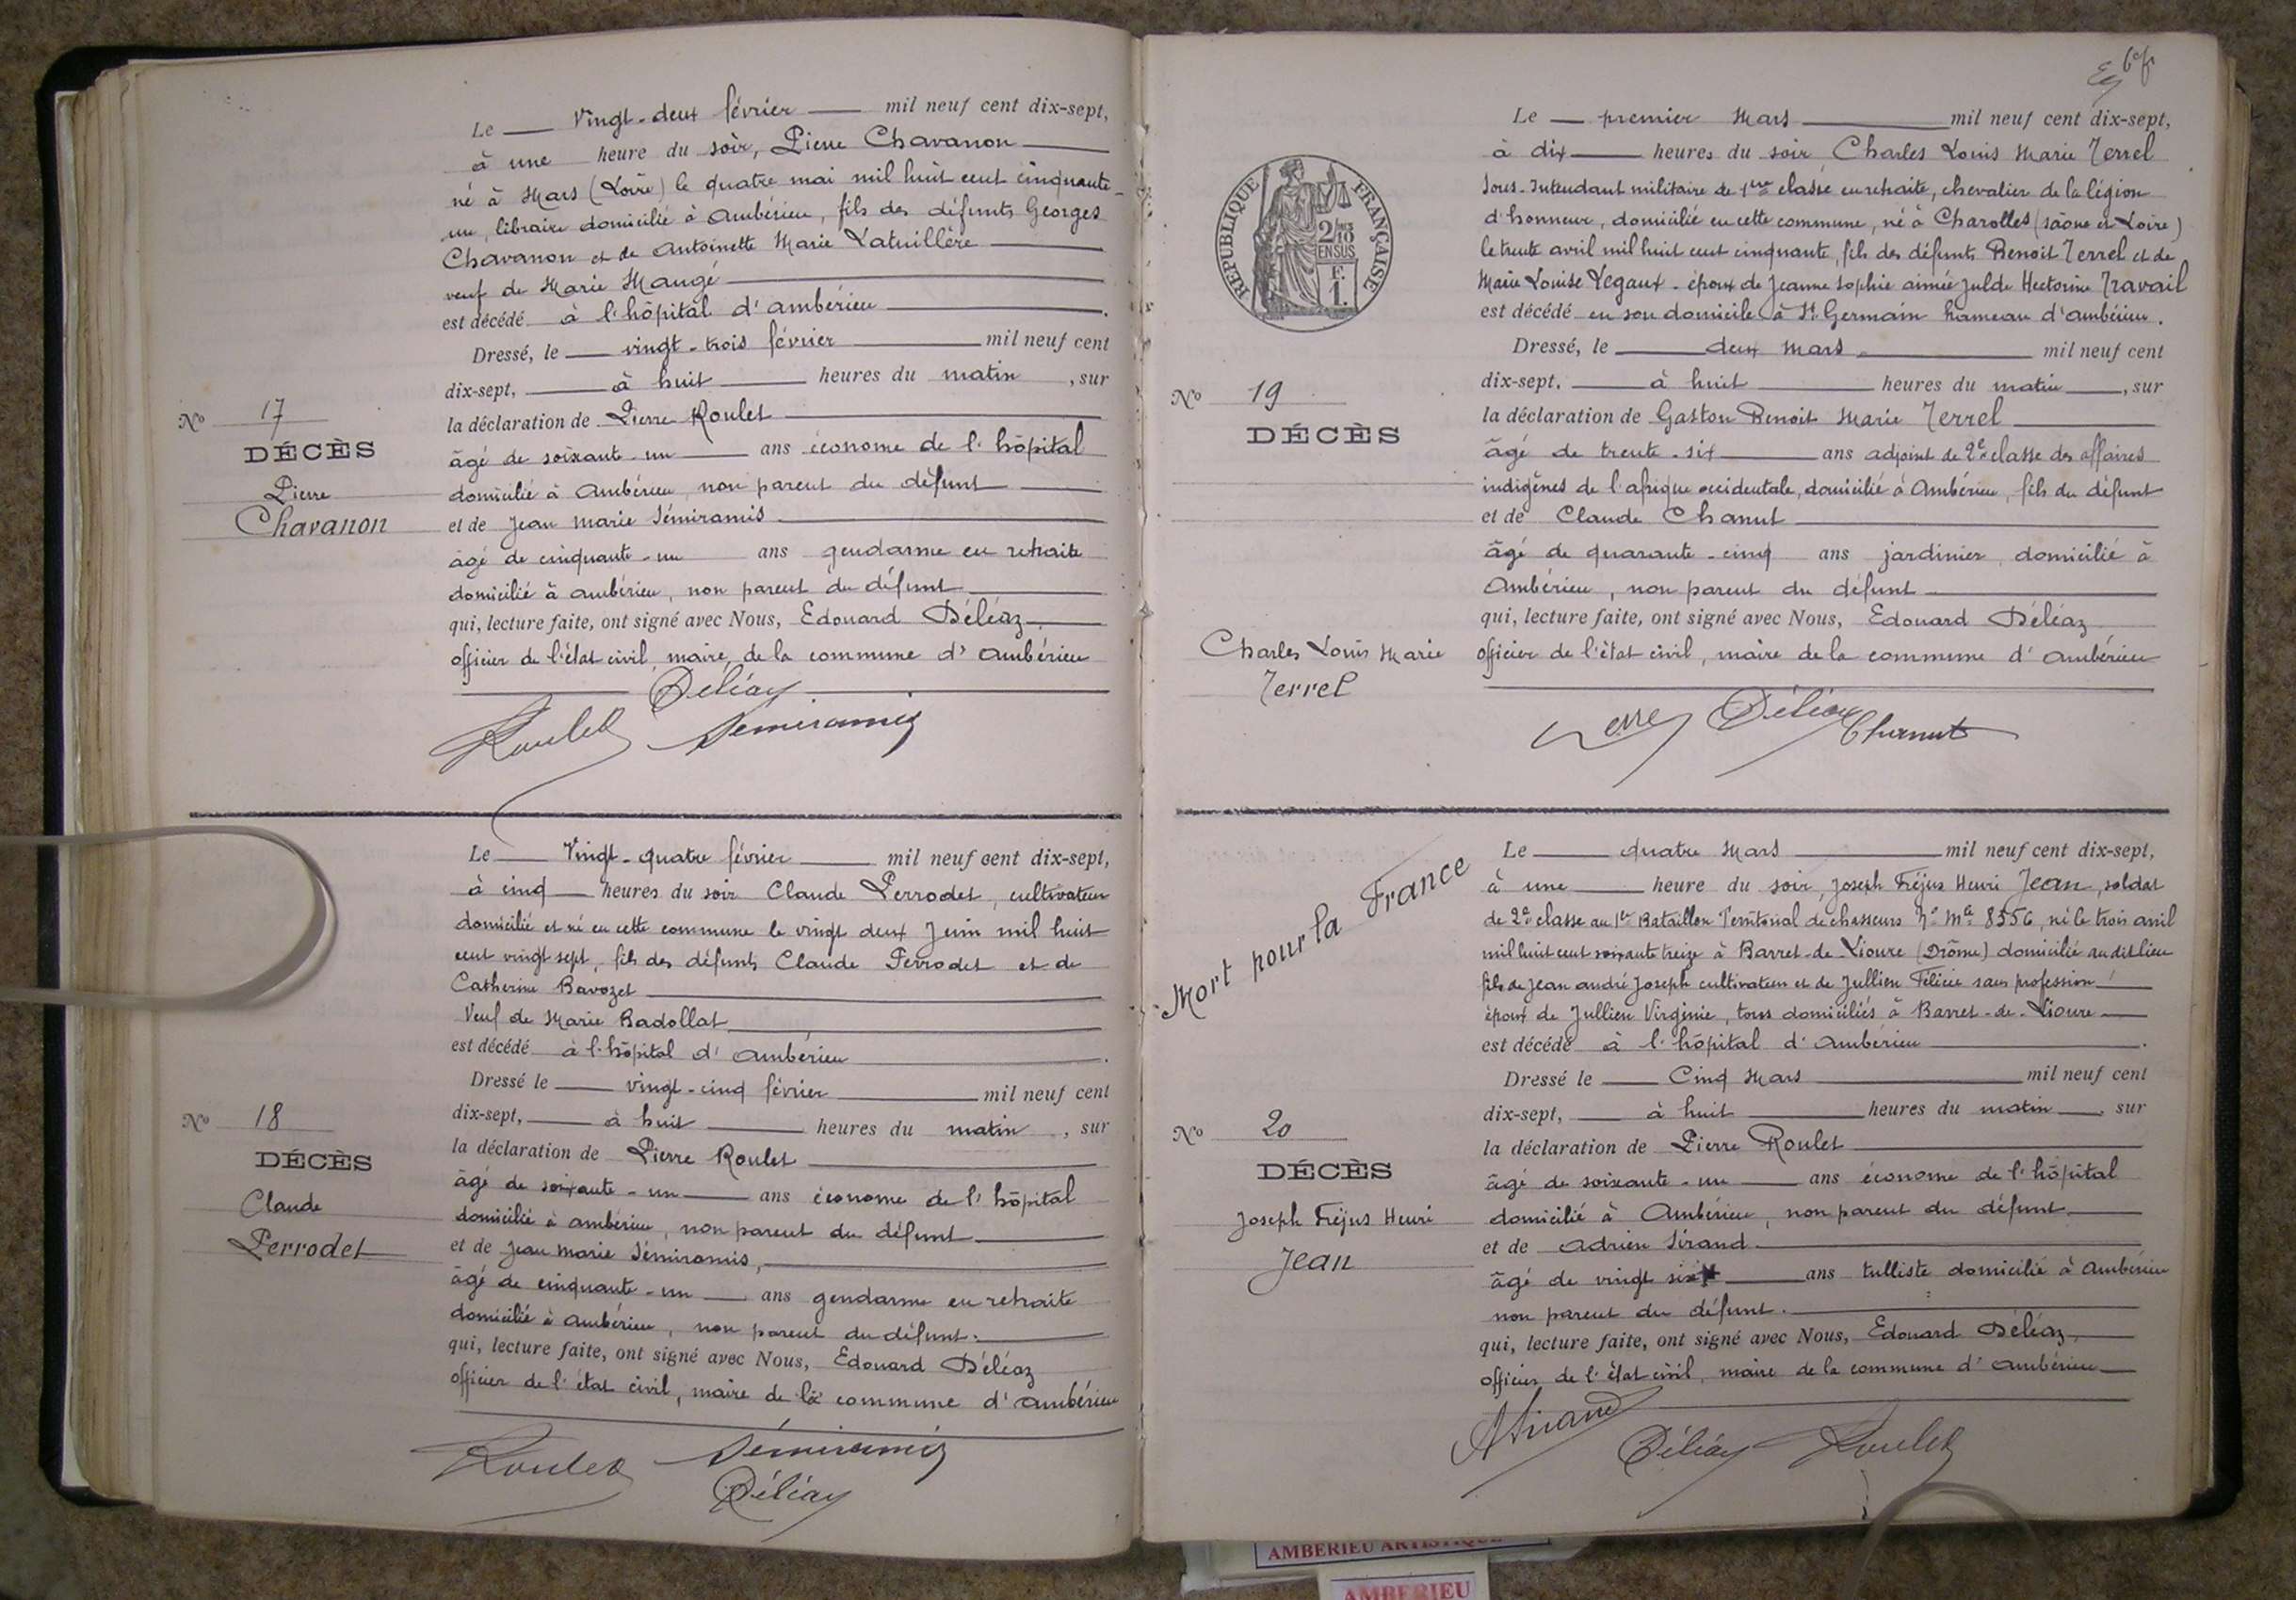 Le Vingt-deux février mil neuf cent dix-sept,
à une heure du soir, Pierre Chavanon
né à Mars (Loire) le quatre mai mil huit cent cinquante-
un, libraire domicilié à Ambérieu, fils des défunts Georges
Chavanon et de Antoinette Marie Latuillère
veuf de Marie Mangé
est décédé à l'hôpital d'ambérieu.
Dressé, le vingt-trois février mil neuf cent
dix-sept, à huit heures du matin, sur
la déclaration de Pierre Roulet
âgé de soixante-un ans économe de l'hôpital
domicilié à Ambérieu, non parent du défunt
et de Jean Marie Sémiramis
âgé de cinquante-un ans gendarme en retraite
domicilié à ambérieu, non parent du défunt
qui, lecture faite, ont signé avec Nous, Edouard Déléaz
officier de l'état civil, maire de la commune d'ambérieu
Déléaz
Roulet Sémiramis
No 17
DÉCÈS
Pierre
Chavanon
Le Vingt-quatre février mil neuf cent dix-sept,
à cinq heures du soir Claude Perrodet, cultivateur
domicilié et né en cette commune le vingt deux Juin mil huit
cent vingt sept, fils des défunts Claude Perrodet et de
Catherine Bavozet
Veuf de Marie Badollat
est décédé à l'hôpital d'Ambérieu.
Dressé le vingt-cinq février mil neuf cent
dix-sept, à huit heures du matin, sur
la déclaration de Pierre Roulet
âgé de soixante-un ans économe de l'hôpital
domicilié à ambérieu, non parent du défunt
et de Jean Marie Sémiramis,
âgé de cinquante-un ans gendarme en retraite
domicilié à Ambérieu, non parent du défunt.
qui, lecture faite, ont signé avec Nous, Edouard Déléaz
officier de l'état civil, maire de la commune d'ambérieu
Roulet Sémiramis
Déléaz
No 18
DÉCÈS
Claude
Perrodet
Le premier Mars mil neuf cent dix-sept,
à dix heures du soir Charles Louis Marie Terrel
Sous-Intendant militaire de 1ère classe en retraite, chevalier de la légion
d'honneur, domicilié en cette commune, né à Charolles (saône et Loire)
le trente avril mil huit cent cinquante, fils des défunts Benoit Terrel et de
Marie Louise Legaux - époux de Jeanne Sophie aimée Julde Hectorine Travail
est décédé en son domicile à St Germain hameau d'ambérieu.
Dressé, le deux Mars mil neuf cent
dix-sept, à huit heures du matin, sur
la déclaration de Gaston Benoit Marie Terrel
âgé de trente-six ans adjoint de 2e classe des affaires
indigènes de l'afrique occidentale, domicilié à Ambérieu, fils du défunt
et de Claude Chanut
âgé de quarante-cinq ans jardinier domicilié à
Ambérieu, non parent du défunt
qui, lecture faite, ont signé avec Nous, Edouard Déléaz
officier de l'état civil, maire de la commune d'Ambérieu
Terrel Déléaz Chanut
RÉPUBLIQUE FRANÇAISE
2/10
EN SUS
F.
1.
No 19
DÉCÈS
Charles Louis Marie
Terrel
Le quatre Mars mil neuf cent dix-sept,
à une heure du soir, Joseph Fréjus Henri Jean, soldat
de 2e classe au 1er Bataillon Territorial de chasseurs No Mle 8556, né le trois avril
mil huit cent soixante treize à Barret-de-Lioure (Drôme) domicilié audit lieu
fils de Jean andré Joseph cultivateur et de Jullien Félicie sans profession
époux de Jullien Virginie, tous domiciliés à Barret-de-Lioure
est décédé à l'hôpital d'Ambérieu.
Dressé le Cinq Mars mil neuf cent
dix-sept, à huit heures du matin, sur
la déclaration de Pierre Roulet
âgé de soixante-un ans économe de l'hôpital
domicilié à Ambérieu, non parent du défunt
et de Adrien Sirand
âgé de vingt six ans tulliste domicilié à Ambérieu
non parent du défunt.
qui, lecture faite, ont signé avec Nous, Edouard Déléaz
officier de l'état civil, maire de la commune d'ambérieu
ASirand Déléaz Roulet
Mort pour la France
No 20
DÉCÈS
Joseph Fréjus Henri
Jean
AMBERIEU ARTISTIQUE
AMBERIEU